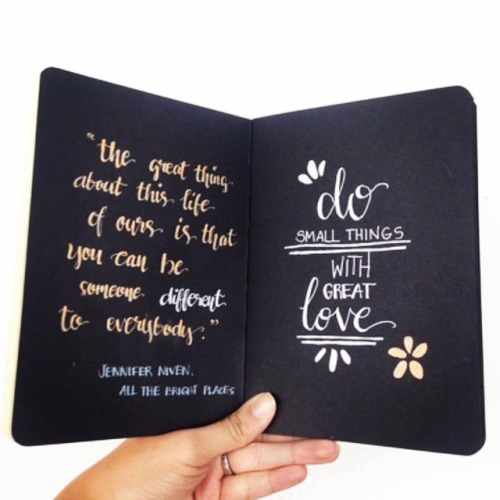 "the great thing
about this life
of ours is that
you can be
someone different
to everybody."
JENNIFER NIVEN,
ALL THE BRIGHT PLACES
do
SMALL THINGS
WITH
GREAT
love